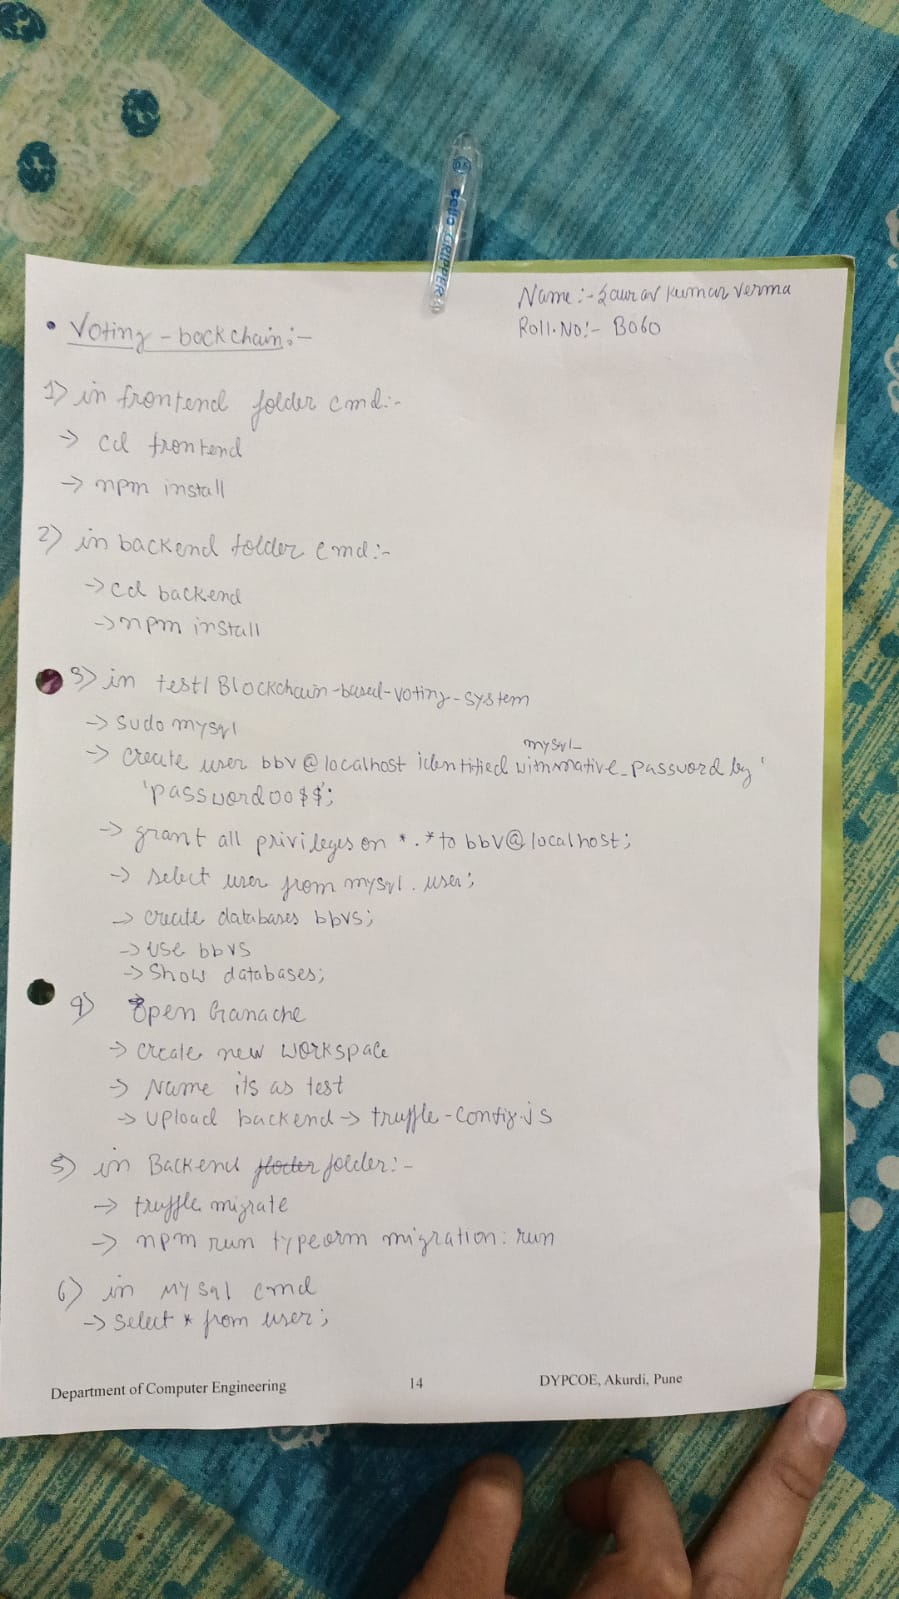 cello GRIPPER
Name:- Saurav Kumar Verma
Roll.No:- B060
• Voting-bockchain:-
1) in frontend folder cmd:-
→ cd frontend
→ npm install
2) in backend folder cmd:-
→ cd backend
→ npm install
3) in test1 Blockchain-based-voting-system
→ sudo mysql
mysql_
→ create user bbv@localhost identified with native_password by '
'password00$$';
→ grant all privileges on *.* to bbv@localhost;
→ select user from mysql.user;
→ create databases bbvs;
→ use bbvs
→ Show databases;
4) Open Ganache
→ create new workspace
→ Name its as test
→ Upload backend → truffle-config.js
5) in Backend folder:-
→ truffle migrate
→ npm run typeorm migration:run
6) in MySql cmd
→ Select * from user;
Department of Computer Engineering 14 DYPCOE, Akurdi, Pune